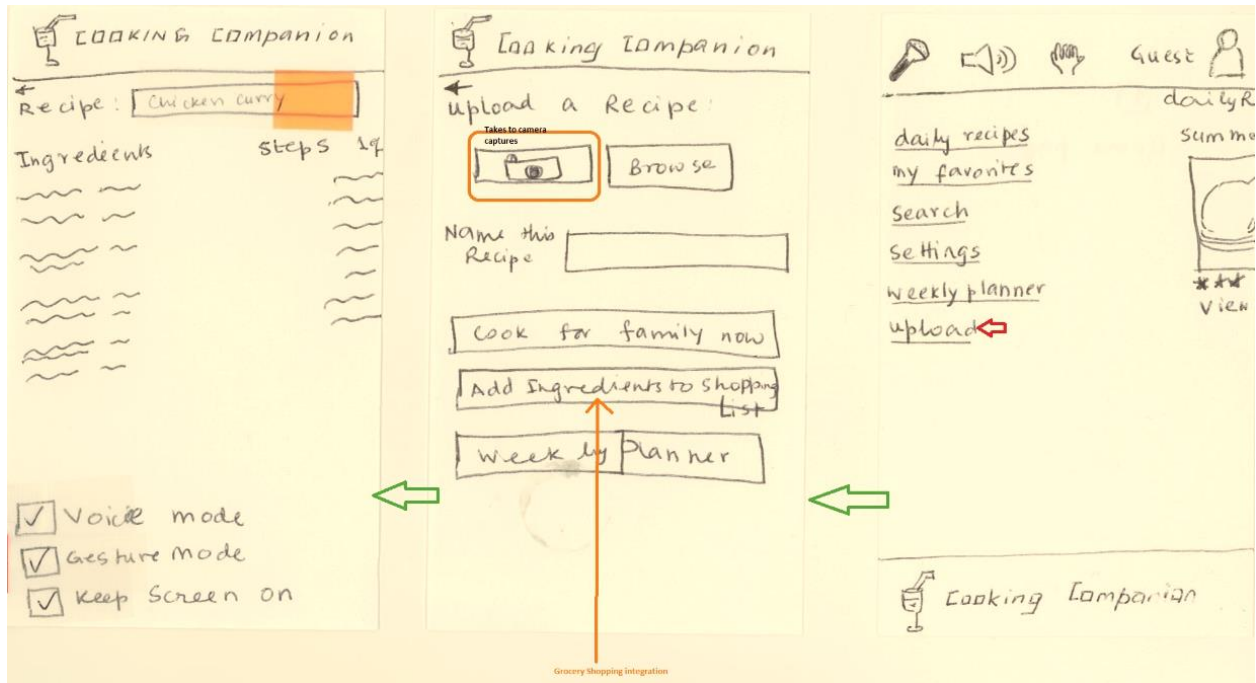 COOKING COMPANION
Recipe: Chicken curry
Ingredients
Steps
Voice mode
Gesture mode
Keep Screen on
Cooking Companion
Upload a Recipe:
Takes to camera
captures
Browse
Name this
Recipe
Cook for family now
Add Ingredients to Shopping
List
Weekly Planner
Grocery Shopping integration
Guest
dailyR
daily recipes
Summe
my favorites
Search
Settings
weekly planner
View
upload
Cooking Companion